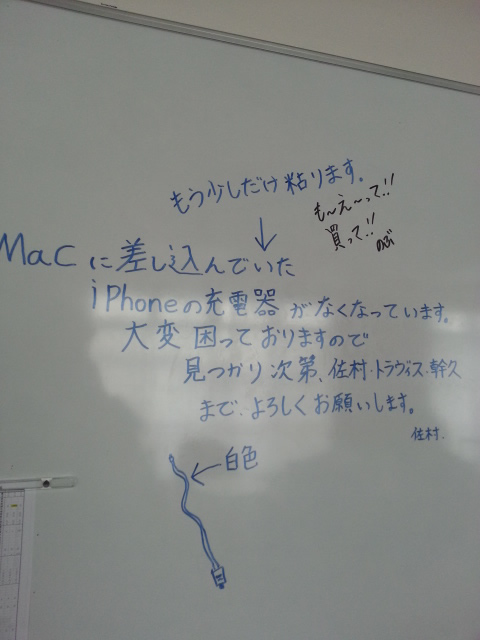 もう少しだけ粘ります。
も〜え〜って!!
買って!!
のぶ
↓
Macに差し込んでいた
iPhoneの充電器がなくなっています。
大変困っておりますので
見つかり次第、佐村・トラヴィス・幹久
まで、よろしくお願いします。
佐村.
←白色